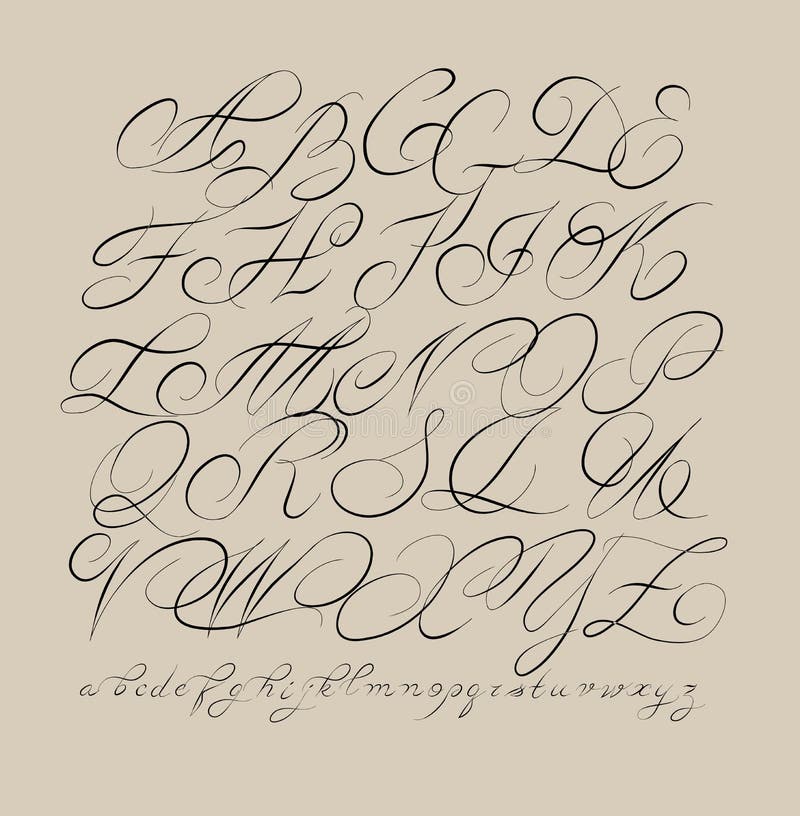 A B C G D E
F H I J K
L M N O P
dreamstime
Q R S T U
V W X Y Z
a b c d e f g h i j k l m n o p q r s t u v w x y z